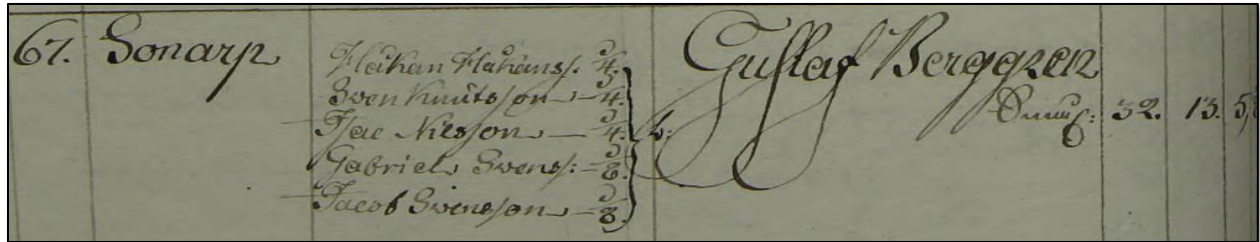 67. Sonarp
Håkan Håkanss:
Sven Knutsson 4.
Isac Nilsson 4.
Gabriel Svenss: 8.
Jacob Svensson 8.
Gustaf Berggren
Smul: 32. 13. 5